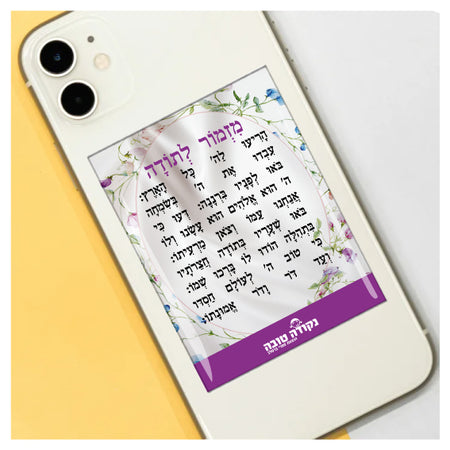 מִזְמוֹר לְתוֹדָה
הָרִיעוּ לַה' כָּל הָאָרֶץ:
עִבְדוּ אֶת ה' בְּשִׂמְחָה
בֹּאוּ לְפָנָיו בִּרְנָנָה: דְּעוּ כִּי
ה' הוּא אֱלֹהִים הוּא עָשָׂנוּ וְלוֹ
אֲנַחְנוּ עַמּוֹ וְצֹאן מַרְעִיתוֹ:
בֹּאוּ שְׁעָרָיו בְּתוֹדָה חֲצֵרֹתָיו
בִּתְהִלָּה הוֹדוּ לוֹ בָּרְכוּ שְׁמוֹ:
כִּי טוֹב ה' לְעוֹלָם חַסְדּוֹ
וְעַד דֹּר וָדֹר אֱמוּנָתוֹ:
נקודה טובה